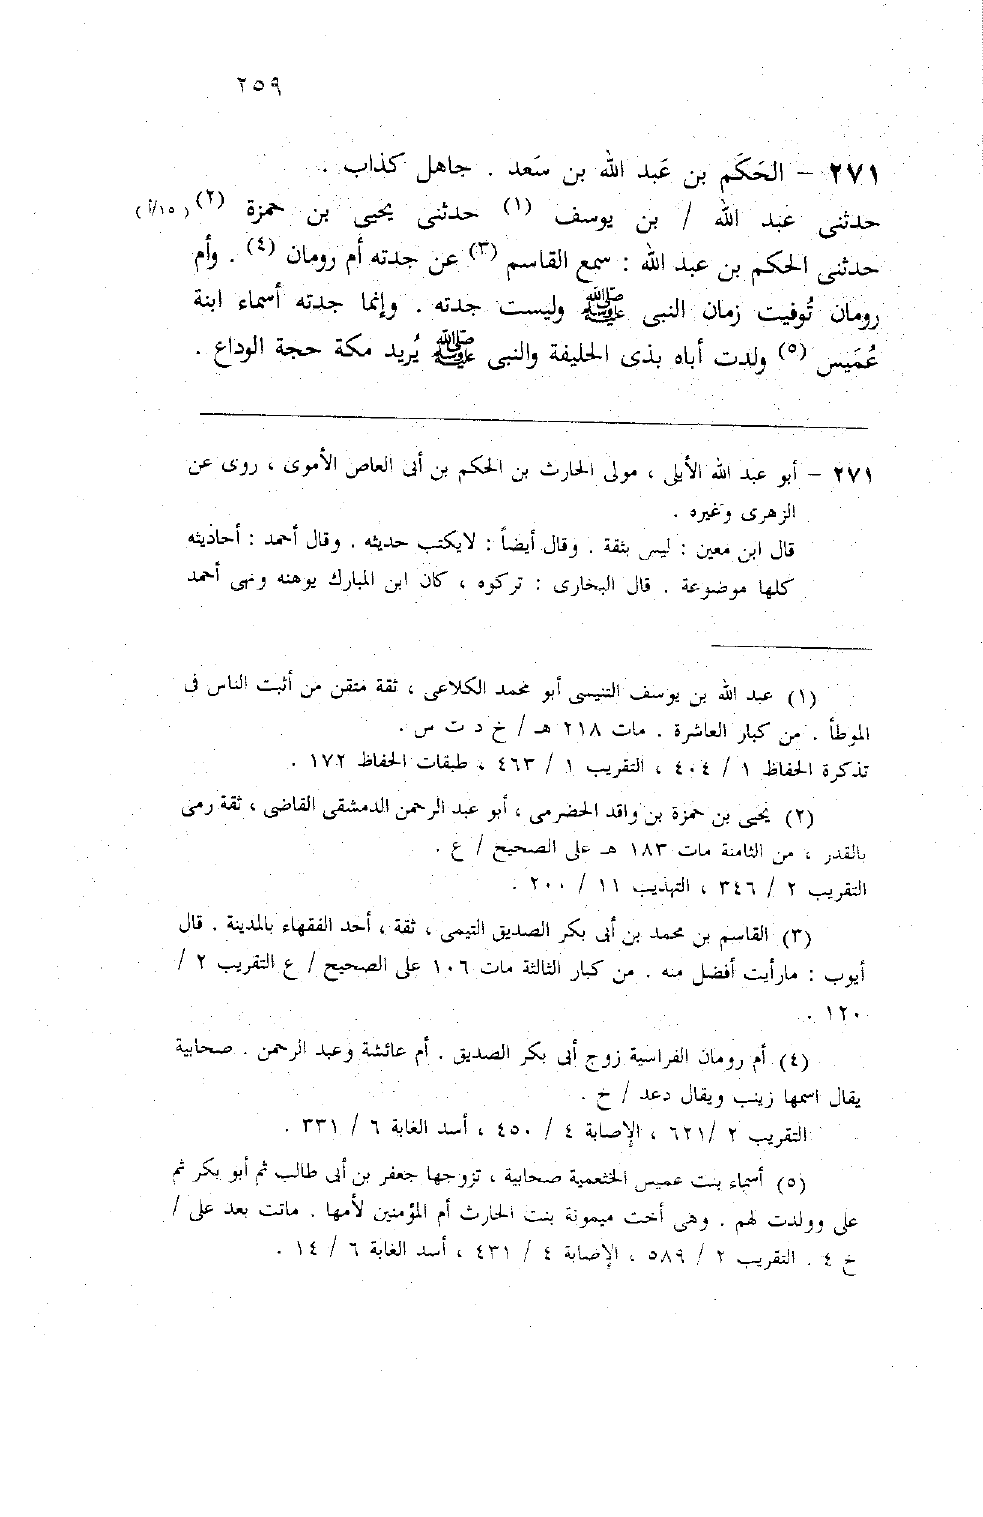 ٢٥٩
٢٧١ – الحَكَم بن عَبد الله بن سَعد . جاهل كذاب .
حدثنى عبد الله / بن يوسف (١) حدثنى يحيى بن حمزة (٢) (١٥/أ)
حدثنى الحكم بن عبد الله : سمع القاسم (٣) عن جدته أم رومان (٤) . وأم
رومان تُوفيت زمان النبى ﷺ وليست جدته . وإنما جدته أسماء ابنة
عُمَيس (٥) ولدت أباه بذى الحليفة والنبى ﷺ يُريد مكة حجة الوداع .
٢٧١ – أبو عبد الله الأيلى ، مولى الحارث بن الحكم بن أبى العاص الأموى ، روى عن
الزهرى وغيره .
قال ابن معين : ليس بثقة . وقال أيضاً : لايكتب حديثه . وقال أحمد : أحاذيثه
كلها موضوعة . قال البخارى : تركوه ، كان ابن المبارك يوهنه ونهى أحمد
(١) عبد الله بن يوسف التنيسى أبو محمد الكلاعى ، ثقة متقن من أثبت الناس فى
الموطأ . من كبار العاشرة . مات ٢١٨ هـ / خ د ت س .
تذكرة الحفاظ ١ / ٤٠٤ ، التقريب ١ / ٤٦٣ ، طبقات الحفاظ ١٧٢ .
(٢) يحيى بن حمزة بن واقد الحضرمى ، أبو عبد الرحمن الدمشقى القاضى ، ثقة رمى
بالقدر ، من الثامنة مات ١٨٣ هـ على الصحيح / ع .
التقريب ٢ / ٣٤٦ ، التهذيب ١١ / ٢٠٠ .
(٣) القاسم بن محمد بن أبى بكر الصديق التيمى ، ثقة ، أحد الفقهاء بالمدينة . قال
أيوب : مارأيت أفضل منه . من كبار الثالثة مات ١٠٦ على الصحيح / ع التقريب ٢ /
١٢٠ .
(٤) أم رومان الفراسية زوج أبى بكر الصديق . أم عائشة وعبد الرحمن . صحابية
يقال اسمها زينب ويقال دعد / خ .
التقريب ٢ /٦٢١ ، الإصابة ٤ / ٤٥٠ ، أسد الغابة ٦ / ٣٣١ .
(٥) أسماء بنت عميس الخثعمية صحابية ، تزوجها جعفر بن أبى طالب ثم أبو بكر ثم
على وولدت لهم . وهى أخت ميمونة بنت الحارث أم المؤمنين لأمها . ماتت بعد على /
خ ٤ . التقريب ٢ / ٥٨٩ ، الإصابة ٤ / ٤٣١ ، أسد الغابة ٦ / ١٤ .